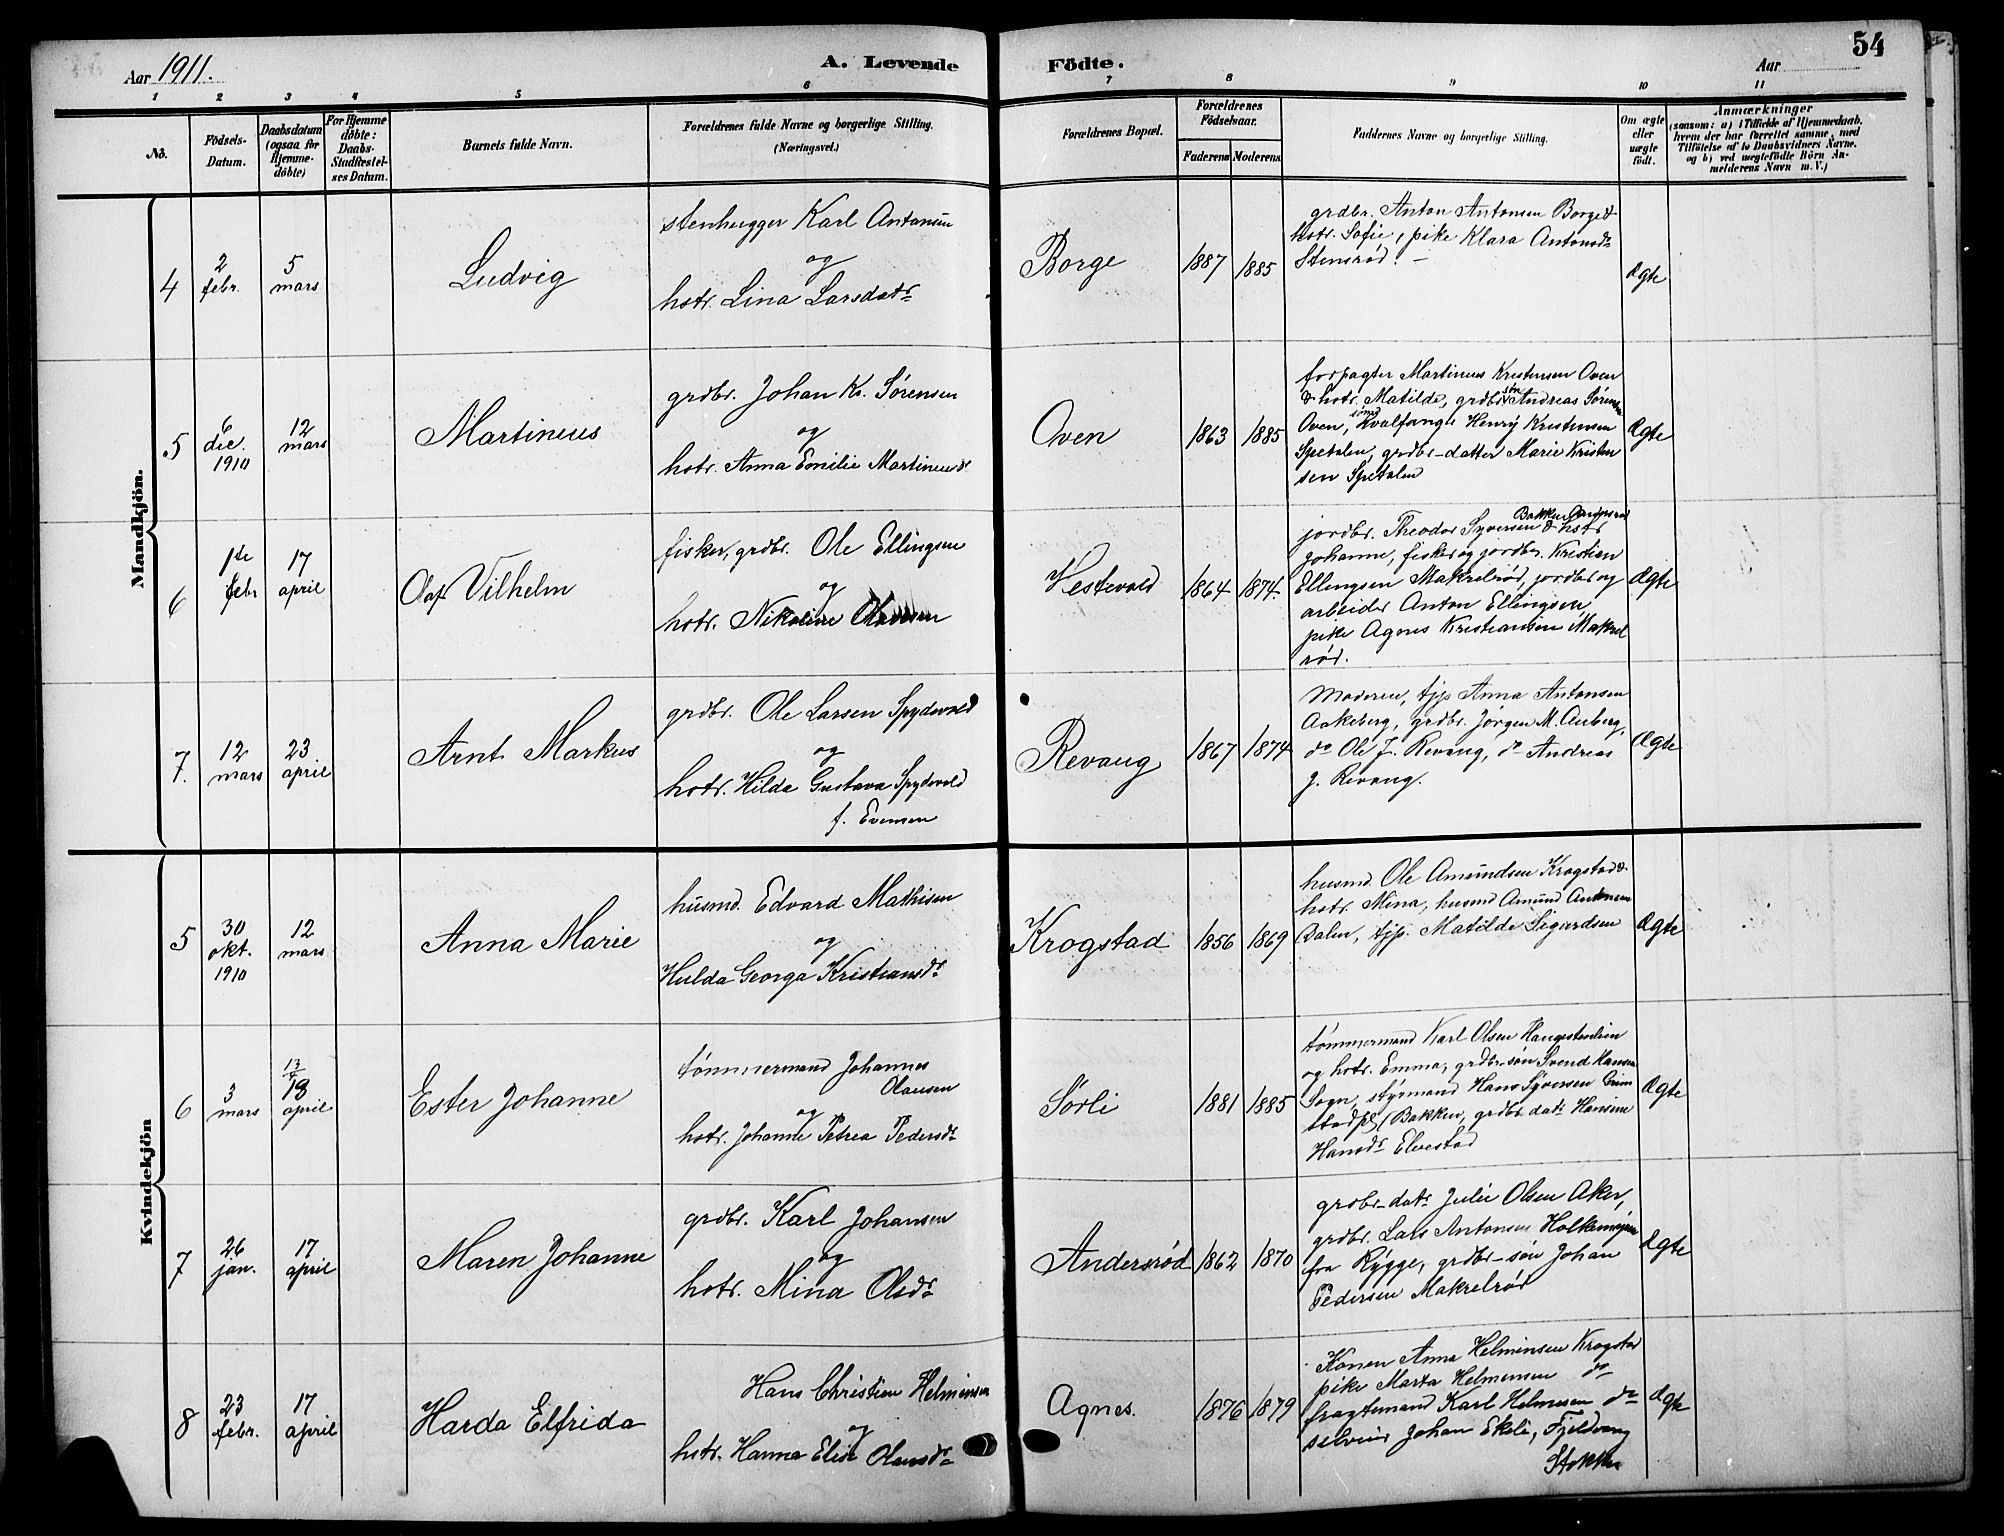 Aar 1911.
A. Levende
Födte.
54
Aar
1 2 3 4 5 6 7 8 9 10 11
No.
Födsels-
Datum.
Daabsdatum
(ogsaa för
Hjemme-
döbte)
For Hjemme
döbte:
Daabs-
Stadfæstel-
ses Datum.
Barnets fulde Navn.
Forældrenes fulde Navne og borgerlige Stilling.
(Næringsvei.)
Forældrenes Bopæl.
Forældrenes
Födselsaar.
Faderens. Moderens.
Faddernes Navne og borgerlige Stilling.
Om ægte
eller
uægte
födt.
Anmærkninger
(saasom: a) i Tilfælde af Hjemmedaab,
hvem der har forrettet samme, med
Tilföielse af to Daabsvidners Navne.
og b) ved uægtefödte Börn An-
melderens Navn m. V.)
Mandkjön.
4
2
febr.
5
mars
Ludvig
stenhugger Karl Antonsen
og
hstr. Lina Larsdatr
Borge
1887 1885
grdbr. Anton Antonsen Borge &
hstr. Sofie, pike Klara Antonsdr
Stensrød. —
Ægte
5
6
dec.
1910
12
mars
Martineus
grdbr. Johan Kr. Sørensen
og
hstr. Anna Emilie Martineusdr
Oven
1863 1885
forpagter Martineus Kristensen Oven
& hstr. Matilde, grdbrsøn Andreas Sørensen
Oven, Hvalfanger Henry Kristensen
Spetalen, grdbr-datter Marie Kristen
sen Spetalen
Ægte
6
1ste
febr
17
april
Olaf Vilhelm
fisker, grdbr. Ole Ellingsen
og
hstr. Nikoline
Vestevold
1864 1874.
jordbr. Theodor Syversen Bakken & hstr
Johanne, fisker og jordbr. Kristian
Ellingsen Makrelrød, jordbr og
arbeider Anton Ellingsen,
pike Agnes Kristiansen Makrel
rød.
Ægte
7.
12
mars
23
april
Arnt Markus
grdbr. Ole Larsen Spydevold
og
hstr. Hilda Gustava Spydevold
f. Evensen
Revaug
1867 1874
Moderen, tjp Anna Antonsen
Aakeberg, grdbr. Jørgen M. Auberg,
do Ole J. Revaug, do Andreas
J. Revaug.
Ægte
Kvindekjön
5
30
okt.
1910
12
mars
Anna Marie
husmd. Edvard Mathisen
og
Hulda Georga Kristiansdr
Krogstad
1856 1869
husmd. Ole Amundsen Krogstad &
hstr. Mina, husmd Amund Antonsen
Dalen, tjp. Matilde Sigardsen
Ægte
6
3
mars
17/4
18
april
Ester Johanne
tømmermand Johannes
Olausen
og
hstr. Johanne Petrea Pedersdr
Sørli
1881 1885
tømmermand Karl Olsen Haugstenlien
og hstr. Emma, grdbr-søn Svend Hansen
Sogn, styrmand Hans Syversen Grim
stadpl (Bakken, grdbr datr Hansine
Hansdr Elvestad
Ægte
7
26
jan.
17
april
Maren Johanne
grdbr. Karl Johansen
og
hstr. Mina Olsdr
Andersrød
1862 1870
grdbr-datr Julie Olsen Aker,
grdbr. Lars Antonsen Holkemyren
fra Rygge, grdbr-søn Johan
Pedersen Makrelrød
Ægte
8
23
febr.
17
april
Harda Elfrida
Hans Christian Helmensen
og
hstr. Hanna Elise Olausdr
Agnes.
1876 1879
Konen Anna Helmensen Krogstad
pike Marta Helmensen do
fragtemand Karl Helmesen do
selveier Johan Ekeli, Fjeldvang
Stokke
Ægte